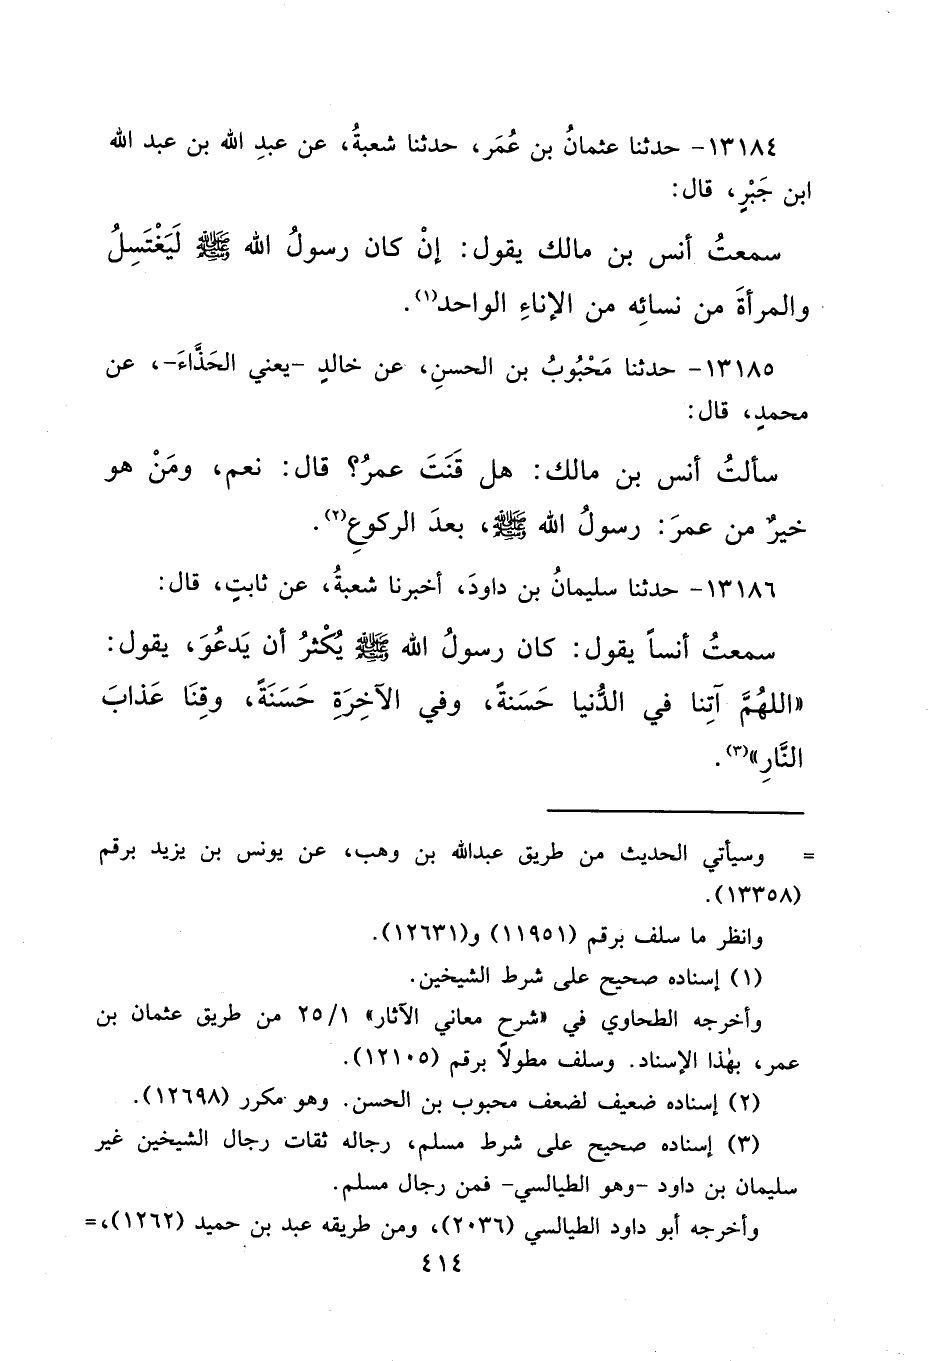 ١٣١٨٤- حدثنا عثمانُ بن عُمَر، حدثنا شعبةُ، عن عبدِ الله بن عبد الله
ابن جَبْرٍ، قال:
سمعتُ أنس بن مالك يقول: إنْ كان رسولُ الله ﷺ لَيَغْتَسِلُ
والمرأةَ من نسائِه من الإناءِ الواحد(١).
١٣١٨٥- حدثنا مَحْبُوبُ بن الحسنِ، عن خالدٍ -يعني الحَذَّاءَ-، عن
محمدٍ، قال:
سألتُ أنس بن مالك: هل قَنَتَ عمرُ؟ قال: نعم، ومَنْ هو
خيرٌ من عمرَ: رسولُ الله ﷺ، بعدَ الركوعِ(٢).
١٣١٨٦- حدثنا سليمانُ بن داودَ، أخبرنا شعبةُ، عن ثابتٍ، قال:
سمعتُ أنساً يقول: كان رسولُ الله ﷺ يُكْثرُ أن يَدعُوَ، يقول:
«اللهُمَّ آتِنا في الدُّنيا حَسَنةً، وفي الآخِرَةِ حَسَنَةً، وقِنَا عَذابَ
النَّارِ»(٣).
= وسيأتي الحديث من طريق عبدالله بن وهب، عن يونس بن يزيد برقم
(١٣٣٥٨).
وانظر ما سلف برقم (١١٩٥١) و(١٢٦٣١).
(١) إسناده صحيح على شرط الشيخين.
وأخرجه الطحاوي في «شرح معاني الآثار» ٢٥/١ من طريق عثمان بن
عمر، بهٰذا الإسناد. وسلف مطولاً برقم (١٢١٠٥).
(٢) إسناده ضعيف لضعف محبوب بن الحسن. وهو مكرر (١٢٦٩٨).
(٣) إسناده صحيح على شرط مسلم، رجاله ثقات رجال الشيخين غير
سليمان بن داود -وهو الطيالسي- فمن رجال مسلم.
وأخرجه أبو داود الطيالسي (٢٠٣٦)، ومن طريقه عبد بن حميد (١٢٦٢)،=
٤١٤